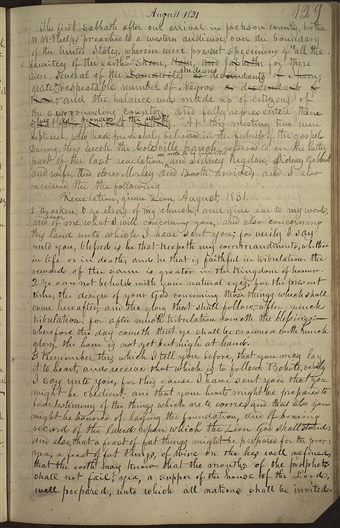 August 1831
129
The first sabbath after our arrival in Jackson county, brother
W. W. Phelps preached to a western audience, over the boundary
of the United States, wherein were present specimens of "all the
families of the earth"; for there
were several of the Indians
quite a respectable number of Negros
and the balance was made up of citizens of
the surrounding country, and fully represented them
selves as pioneers of the west. At this meeting two were
baptized, who had previously believed in the fulness of the gospel.
During this week the Colesville branch arrived in the latter
part of the last revelation, and Sidney Rigdon, Sidney Gilbert
and wife, and elders Morley and Booth arrived; and I also
received the following
Revelation, given Zion August, 1831.
1 Hearken, O ye elders of my church, and give ear to my word,
and learn of me what I will concerning you, and also concerning
this land unto which I have sent you; for verily I say
unto you, blessed is he that keepeth my commandments, whether
in life or in death; and he that is faithful in tribulation the
reward of the same is greater in the kingdom of heaven.
2 Ye can not behold with your natural eyes, for the present
time, the design of your God concerning those things which shall
come hereafter, and the glory that shall follow after much
tribulation. for after much tribulation cometh the blessings;
wherefore the day cometh that ye shall be crowned with much
glory, the hour is not yet but nigh at hand.
3 Remember this which I tell you before, that you may lay
it to heart, and receive that which is to follow. Behold, verily
I say unto you, for this cause I have sent you that you
might be obedient, and that your hearts might be prepared to
bear testimony of the things which are to come; and also you
might be honored of laying the foundation, and of bearing
record of the land upon which the Zion of God shall stand;
and also, that a feast of fat things might be prepared for the poor;
yea, a feast of fat things, of wine on the lees well refined,
that the earth may know that the mouths of the prophets
shall not fail; yea, a supper of the house of the Lord,
well prepared, unto which all nations shall be invited.